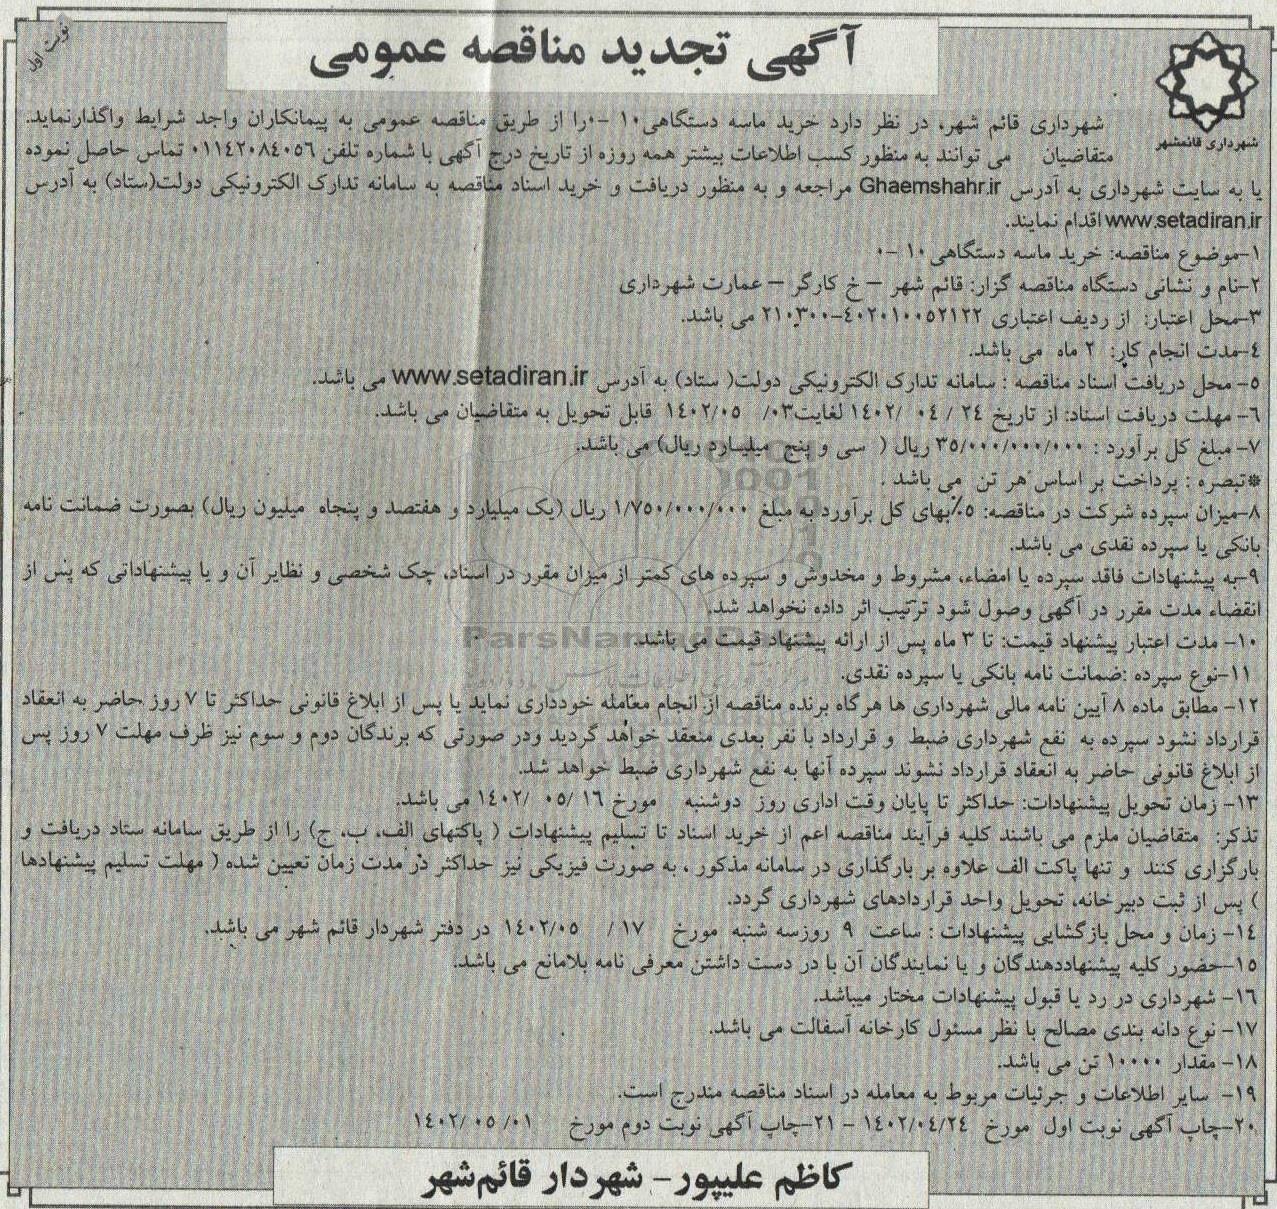 نوبت اول
آگهی تجدید مناقصه عمومی
شهرداری قائمشهر
شهرداری قائم شهر، در نظر دارد خرید ماسه دستگاهی۱۰ -۰را از طریق مناقصه عمومی به پیمانکاران واجد شرایط واگذارنماید.
متقاضیان می توانند به منظور کسب اطلاعات بیشتر همه روزه از تاریخ درج آگهی با شماره تلفن ۰۱۱۴۲۰۸۴۰۵۶ تماس حاصل نموده
یا به سایت شهرداری به آدرس Ghaemshahr.ir مراجعه و به منظور دریافت و خرید اسناد مناقصه به سامانه تدارک الکترونیکی دولت(ستاد) به آدرس
www.setadiran.ir اقدام نمایند.
۱-موضوع مناقصه: خرید ماسه دستگاهی۱۰ -۰
۲-نام و نشانی دستگاه مناقصه گزار: قائم شهر – خ کارگر – عمارت شهرداری
۳-محل اعتبار: از ردیف اعتباری ۴۰۲۰۱۰۰۵۲۱۲۲-۲۱۰۳۰۰ می باشد.
۴-مدت انجام کار: ۲ ماه می باشد.
۵- محل دریافت اسناد مناقصه : سامانه تدارک الکترونیکی دولت( ستاد) به آدرس www.setadiran.ir می باشد.
۶- مهلت دریافت اسناد: از تاریخ ۲۴ / ۰۴ /۱۴۰۲ لغایت۰۳/ ۱۴۰۲/۰۵ قابل تحویل به متقاضیان می باشد.
۷- مبلغ کل برآورد : ۳۵/۰۰۰/۰۰۰/۰۰۰ ریال ( سی و پنج میلیارد ریال) می باشد.
*تبصره : پرداخت بر اساس هر تن می باشد .
۸-میزان سپرده شرکت در مناقصه: ۵٪بهای کل برآورد به مبلغ ۱/۷۵۰/۰۰۰/۰۰۰ ریال (یک میلیارد و هفتصد و پنجاه میلیون ریال) بصورت ضمانت نامه
بانکی یا سپرده نقدی می باشد.
۹-به پیشنهادات فاقد سپرده یا امضاء، مشروط و مخدوش و سپرده های کمتر از میزان مقرر در اسناد، چک شخصی و نظایر آن و یا پیشنهاداتی که پس از
انقضاء مدت مقرر در آگهی وصول شود ترتیب اثر داده نخواهد شد.
۱۰- مدت اعتبار پیشنهاد قیمت: تا ۳ ماه پس از ارائه پیشنهاد قیمت می باشد.
ParsNamadData
۱۱-نوع سپرده :ضمانت نامه بانکی یا سپرده نقدی.
۱۲- مطابق ماده ۸ آیین نامه مالی شهرداری ها هرگاه برنده مناقصه از انجام معامله خودداری نماید یا پس از ابلاغ قانونی حداکثر تا ۷ روز حاضر به انعقاد
قرارداد نشود سپرده به نفع شهرداری ضبط و قرارداد با نفر بعدی منعقد خواهد گردید ودر صورتی که برندگان دوم و سوم نیز ظرف مهلت ۷ روز پس
از ابلاغ قانونی حاضر به انعقاد قرارداد نشوند سپرده آنها به نفع شهرداری ضبط خواهد شد.
۱۳- زمان تحویل پیشنهادات: حداکثر تا پایان وقت اداری روز دوشنبه مورخ ۱۶ /۰۵ /۱۴۰۲ می باشد.
تذکر: متقاضیان ملزم می باشند کلیه فرآیند مناقصه اعم از خرید اسناد تا تسلیم پیشنهادات ( پاکتهای الف، ب، ج) را از طریق سامانه ستاد دریافت و
بارگزاری کنند و تنها پاکت الف علاوه بر بارگذاری در سامانه مذکور ، به صورت فیزیکی نیز حداکثر در مدت زمان تعیین شده ( مهلت تسلیم پیشنهادها
) پس از ثبت دبیرخانه، تحویل واحد قراردادهای شهرداری گردد.
۱۴- زمان و محل بازگشایی پیشنهادات : ساعت ۹ روزسه شنبه مورخ ۱۷ / ۱۴۰۲/۰۵ در دفتر شهردار قائم شهر می باشد.
۱۵-حضور کلیه پیشنهاددهندگان و یا نمایندگان آن با در دست داشتن معرفی نامه بلامانع می باشد.
۱۶- شهرداری در رد یا قبول پیشنهادات مختار میباشد.
۱۷- نوع دانه بندی مصالح با نظر مسئول کارخانه آسفالت می باشد.
۱۸- مقدار ۱۰۰۰۰ تن می باشد.
۱۹- سایر اطلاعات و جزئیات مربوط به معامله در اسناد مناقصه مندرج است.
۲۰-چاپ آگهی نوبت اول مورخ ۱۴۰۲/۰۴/۲۴ - ۲۱-چاپ آگهی نوبت دوم مورخ ۰۱/ ۱۴۰۲/۰۵
کاظم علیپور- شهردار قائم‌شهر